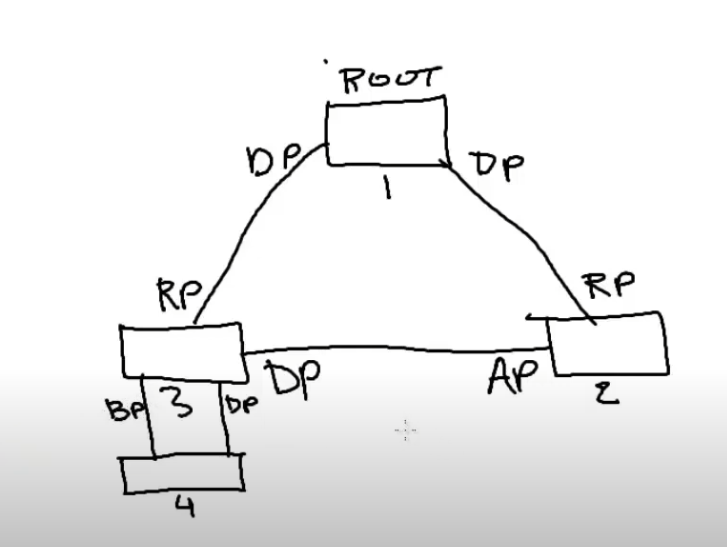 ROOT
DP
DP
1
RP
RP
DP
AP
2
BP
3
DP
4